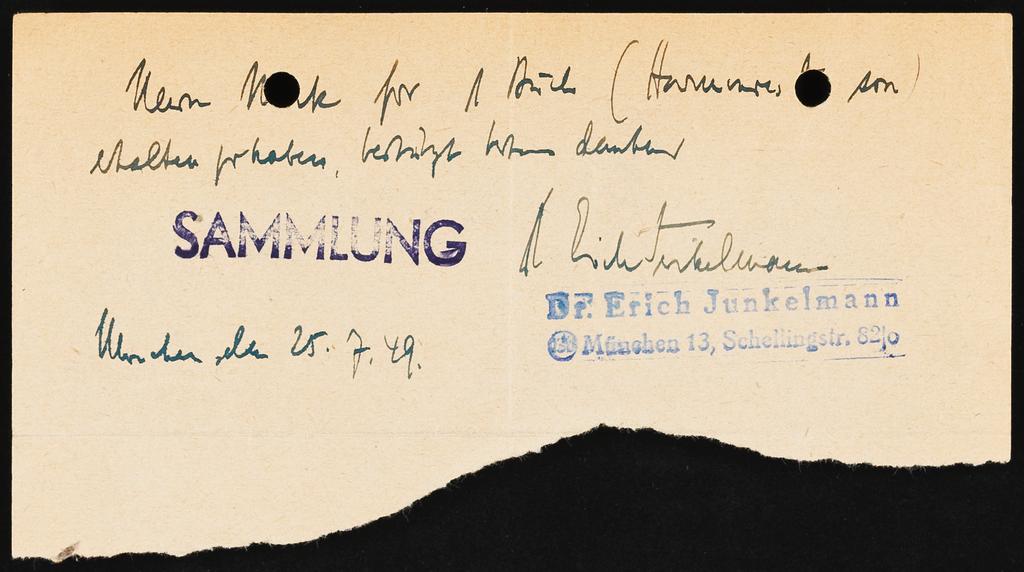 für 1 Buch (
erhalten zu haben, bestätigt bestens dankend
SAMMLUNG
Dr. Erich Junkelmann
Dr. Erich Junkelmann
München 13, Schellingstr. 82/0
München, den 25. 7. 49.